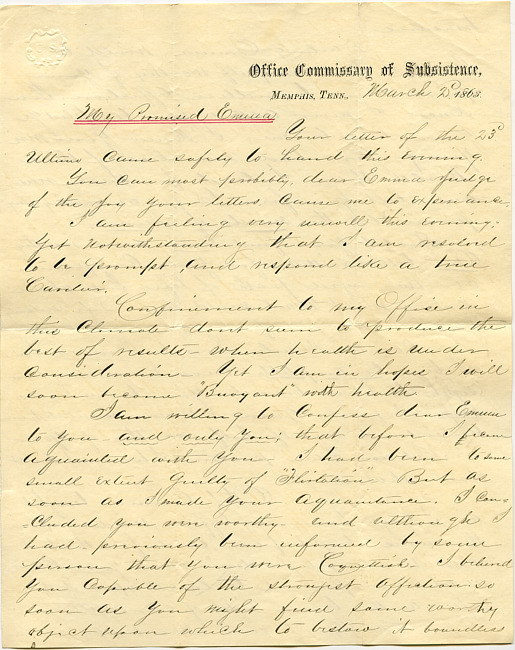 Office Commissary of Subsistence,
Memphis, Tenn., March 2d 1863.
My Promised Emma
Your letter of the 23d
Ultimo came safely to hand this evening.
You can most probably, dear Emma judge
of the joy your letters cause me to experience.
I am feeling very unwell this evening.
Yet notwithstanding that I am resolved
to be prompt, and respond like a true
Cavalier.
Confinement to my Office in
this Climate dont seem to produce the
best of results when health is under
Consideration — Yet I am in hopes I will
soon become "Buoyant" with health
I am willing to Confess dear Emma
to you and only you; that before I became
aquainted with you I had been to some
small extent guilty of "Flirtation" But as
soon as I made your aquaintance. I Con-
-cluded you were worthy and although I
had previously been informed by some
person that you were Coquettish I believed
you Capible of the strongest affection so
soon as you might find some worthy
object upon which to bestow it boundless